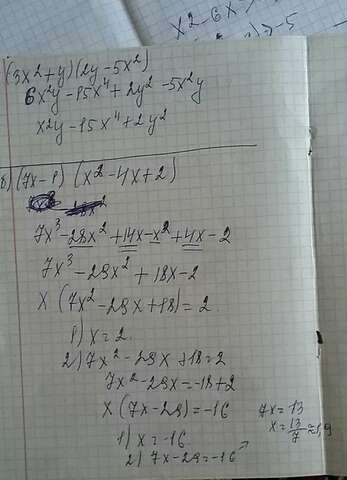 x2-6x
≥-5
(3x²+y)(2y-5x²)
6x²y-15x⁴+2y²-5x²y
x²y-15x⁴+2y²
б) (7x-1) (x²-4x+2)
7x³-28x²+14x-x²+4x-2
7x³-29x²+18x-2
x (7x²-29x+18)=2
1) x=2
2) 7x²-29x+18=2
7x²-29x=-18+2
x (7x-29)=-16
1) x=-16
2) 7x-29=-16
7x=13
x=13/7≈1,9